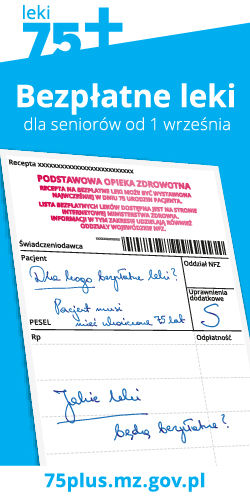 leki
75+
Bezpłatne leki
dla seniorów od 1 września
Recepta xxxxxxxxxxxxxxxxxxxxxxxxx
PODSTAWOWA OPIEKA ZDROWOTNA
RECEPTA NA BEZPŁATNE LEKI MOŻE BYĆ WYSTAWIONA
NAJWCZEŚNIEJ W DNIU 75 URODZIN PACJENTA.
LISTA BEZPŁATNYCH LEKÓW DOSTĘPNA JEST NA STRONIE
INTERNETOWEJ MINISTERSTWA ZDROWIA.
INFORMACJI W TYM ZAKRESIE UDZIELAJĄ RÓWNIEŻ
ODDZIAŁY WOJEWÓDZKIE NFZ.
Świadczeniodawca
Pacjent
Oddział NFZ
Dla kogo bezpłatne leki?
Uprawnienia
dodatkowe
S
Pacjent musi
mieć ukończone 75 lat
PESEL
Rp
Odpłatność
Jakie leki
będą bezpłatne?
75plus.mz.gov.pl